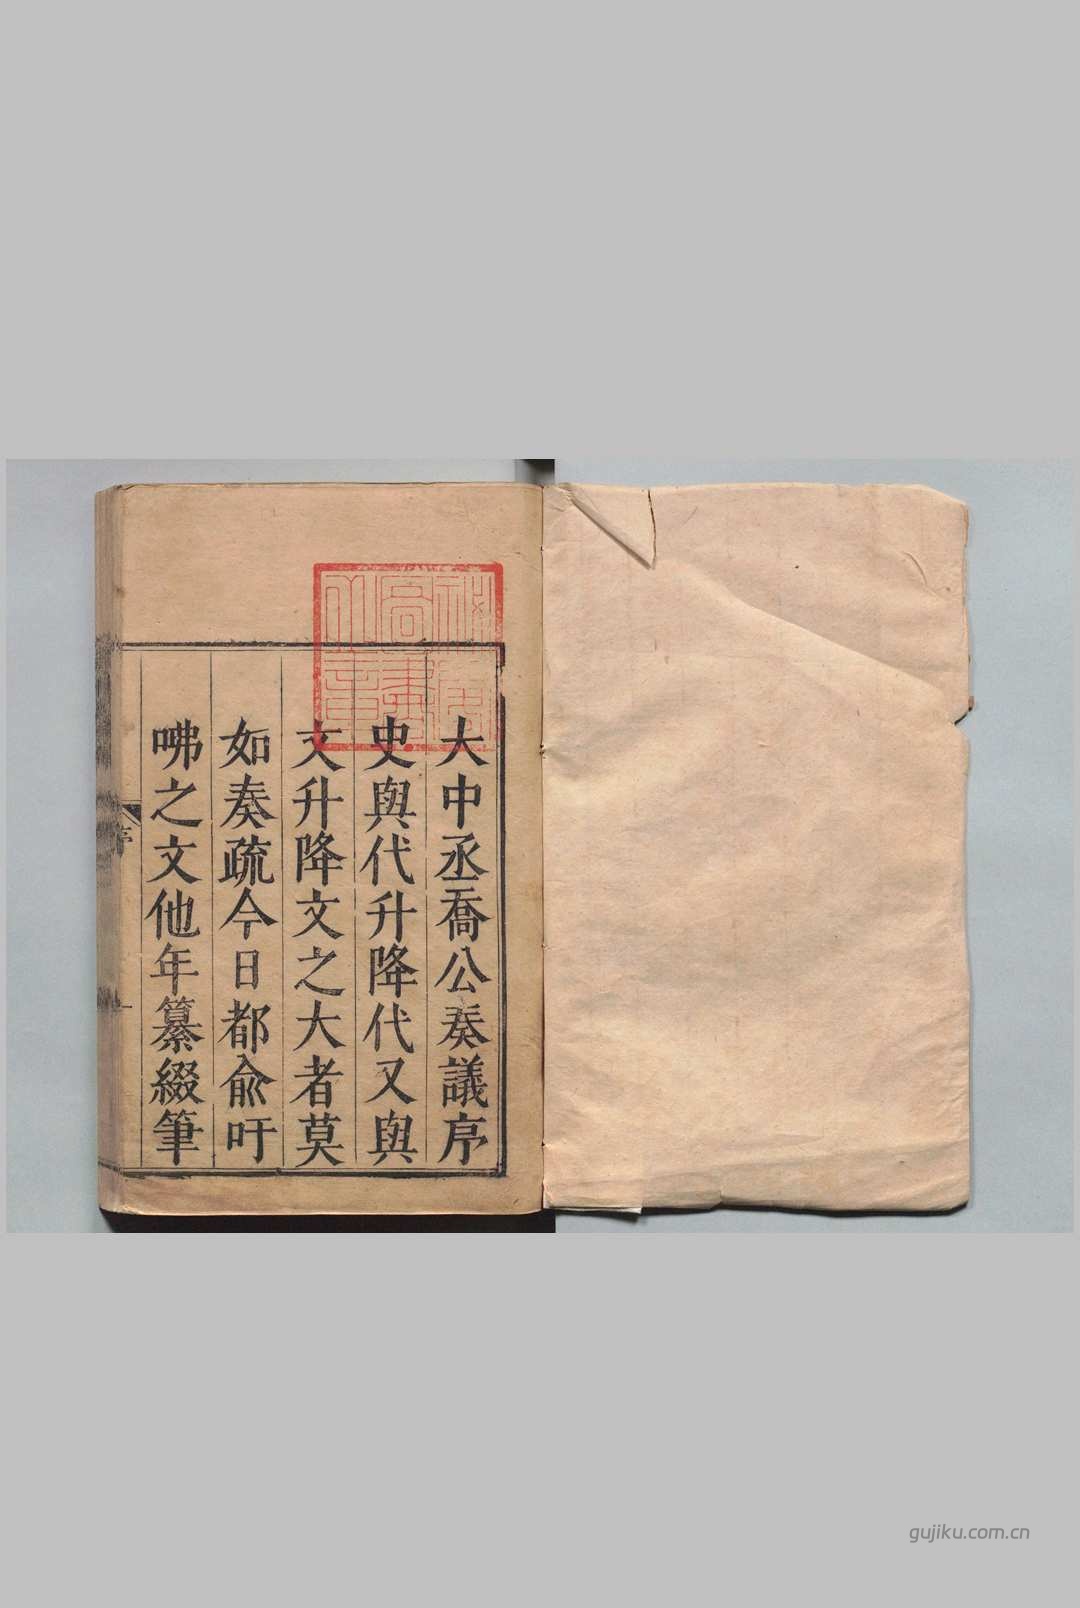 大中丞喬公奏議序
史與代升降代又與
文升降文之大者莫
如奏疏今日都兪吁
咈之文他年纂綴筆
序
一
gujiku.com.cn